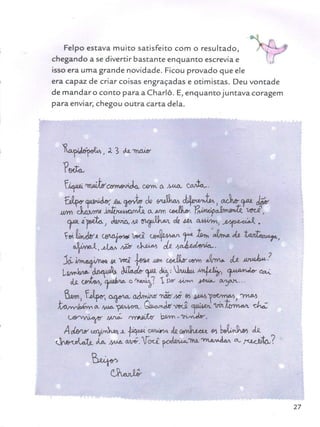 Felpo estava muito satisfeito com o resultado,
chegando a se divertir bastante enquanto escrevia e
isso era uma grande novidade. Ficou provado que ele
era capaz de criar coisas engraçadas e otimistas. Deu vontade
de mandar o conto para a Charlô. E, enquanto juntava coragem
para enviar, chegou outra carta dela.
Rapidópolis, 23 de maio
Poeta.
Fiquei muito comovida com a sua carta.
Felpo querido, eu gosto de orelhas diferentes, acho que dão
um charme interessante a um coelho. Principalmente você,
que é poeta, devia se orgulhar de ser assim, especial.
Foi lindo e corajoso você confessar que tem alma de tartaruga,
afinal, elas são cheias de sabedoria.
Já imaginou se você fosse um coelho com alma de urubu?
Lembra daquele ditado que diz: Urubu infeliz, quando cai
de costas, quebra o nariz? Isso sim seria azar...
Bem, Felpo, agora admiro não só os seus poemas, mas
também a sua pessoa. Quando você quiser vir tomar chá
comigo será muito bem-vindo.
Adoro ursinhos e fiquei curiosa de conhecer os bolinhos de
chocolate da sua avó. Você poderia me mandar a receita?
Beijos
Charlô
27